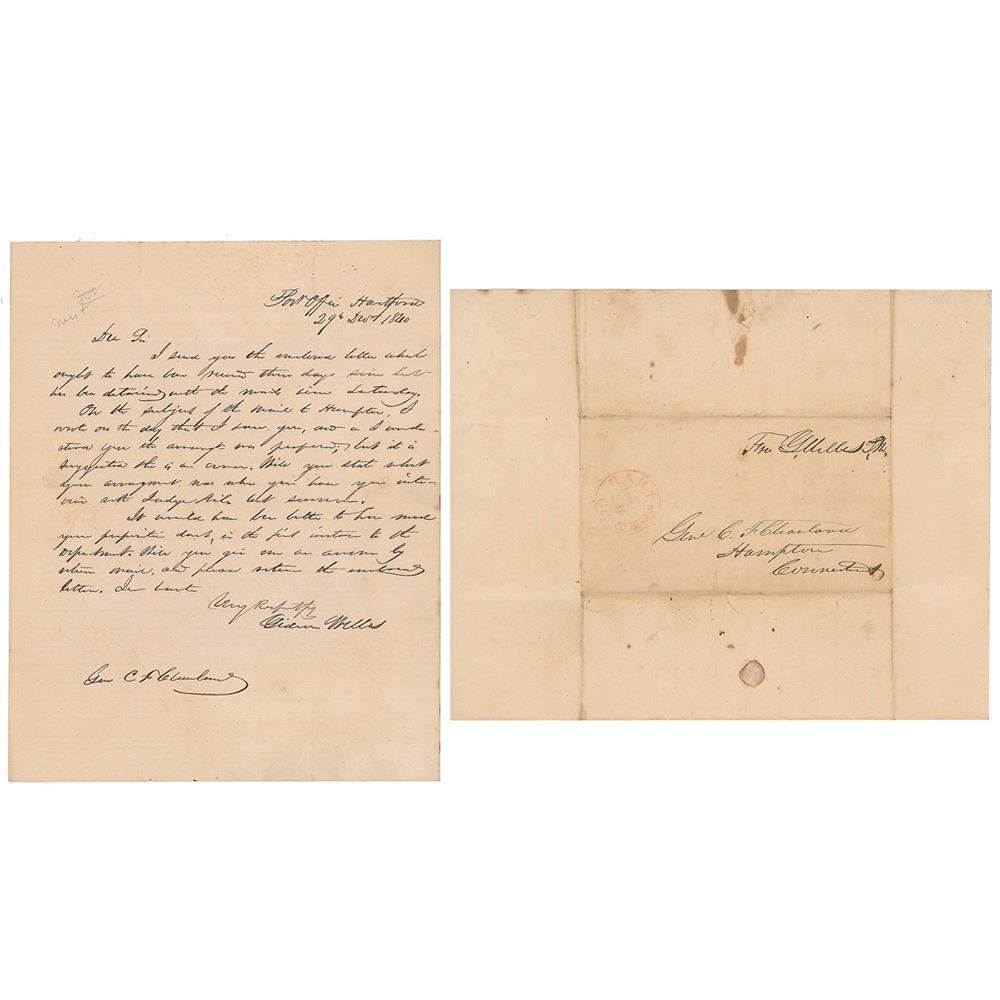 Post Office Hartford
29th Decr 1840
Dear Sir
I send you the enclosed letter which
ought to have been received three days since but
has been detained with the mails since Saturday.
On the subject of the mail to Hampton, I
wrote on the day that I saw you, and as I under-
stood you the arrangt was proposed; but it is
suggested there is an error. Will you state what
your arrangement was when you had your inter-
view with Judge Niles last summer.
It would have been better to have made
your proposition direct, in the first instance to the
department. Will you give me an answer by
return mail, and please return the enclosed
letter. In haste
Very Respectfly
Gideon Welles
Genl C F Cleaveland
Free G. Welles P.M.
HARTFORD
Genl C. F. Cleaveland
Hampton
Connecticut